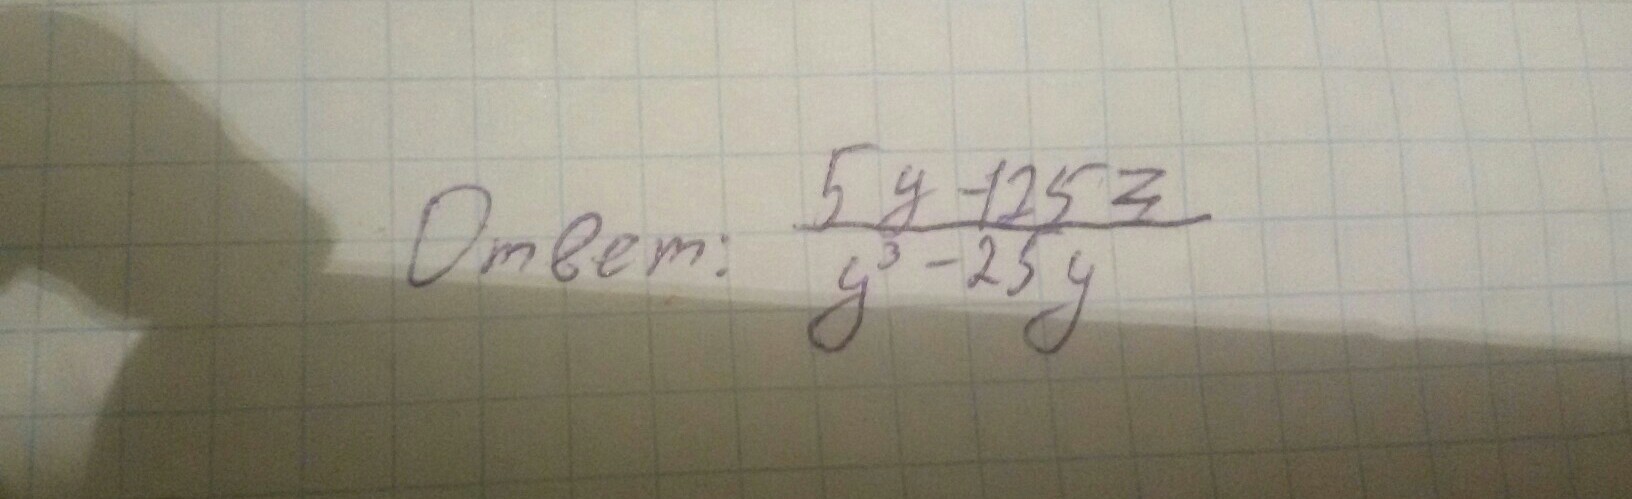 Ответ: 5y-125z
y³-25y